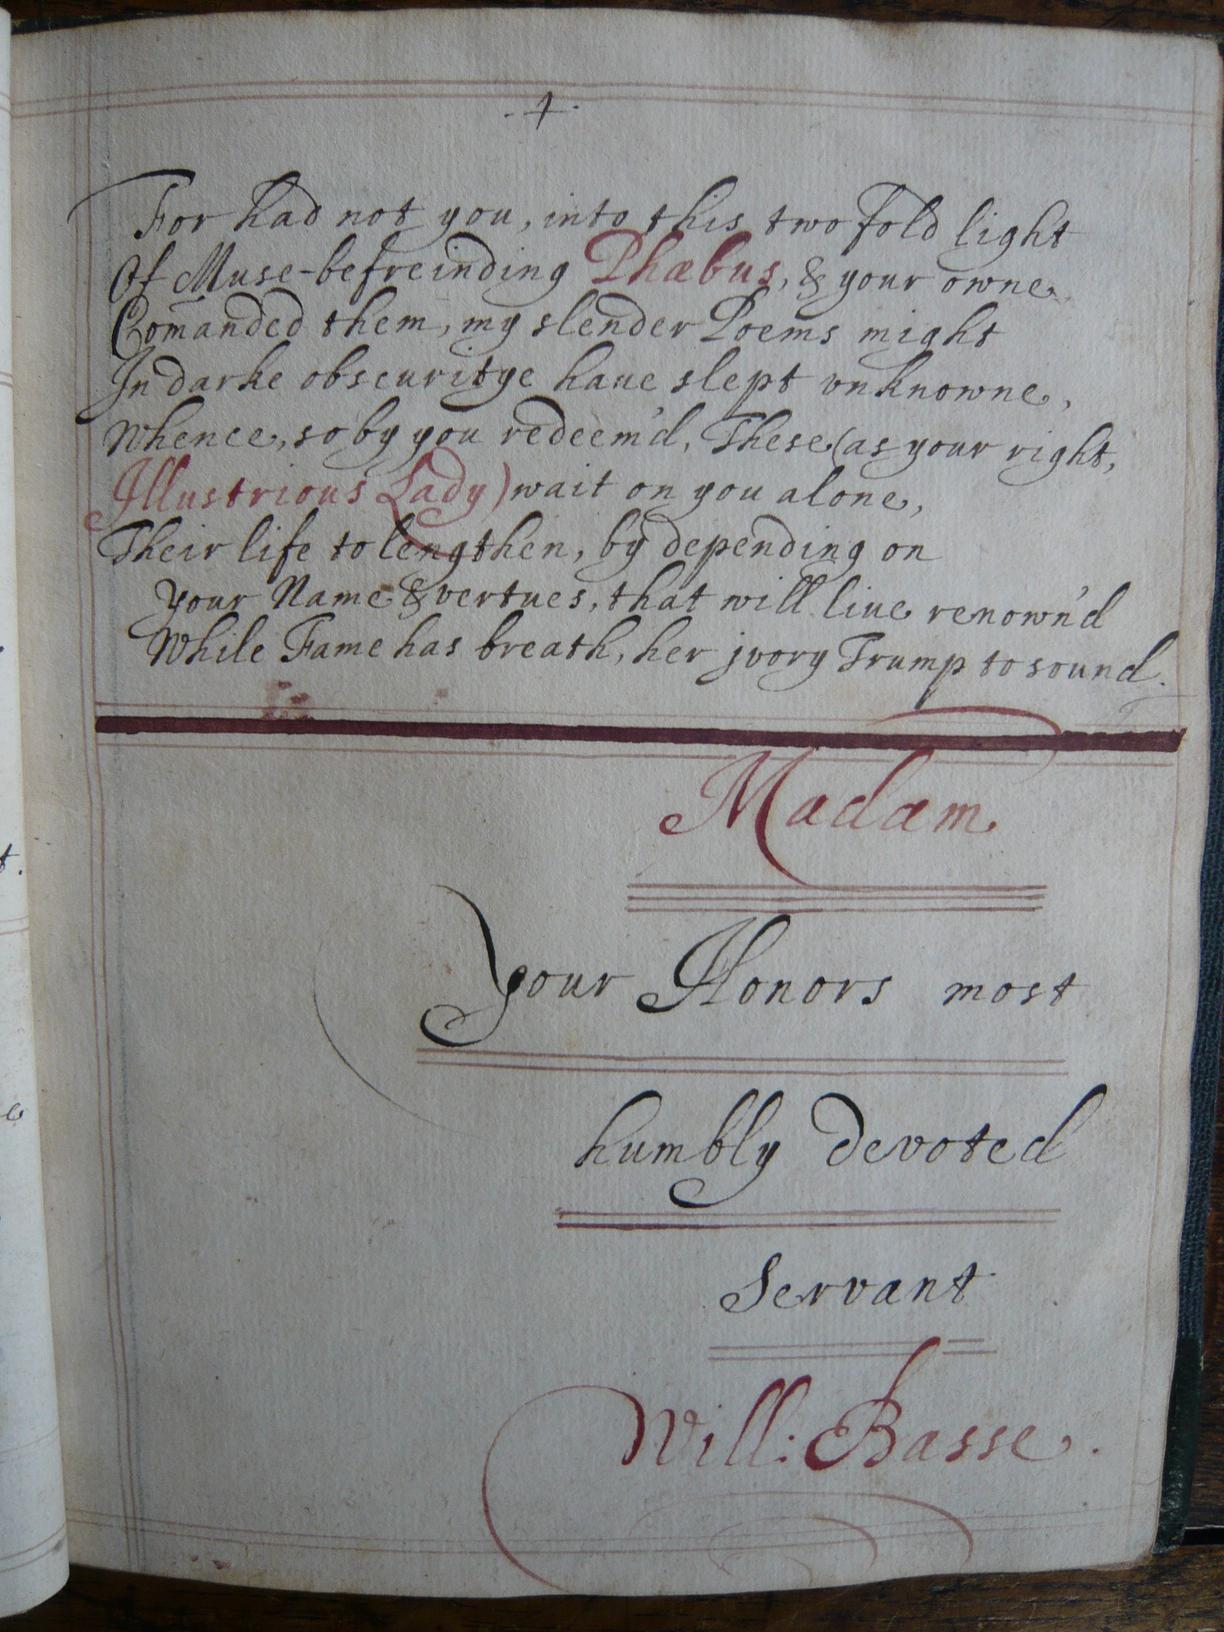 .4.
For had not you, into this two fold light
Of Muse-befreinding Phæbus, & your owne
Com̄anded them, my slender Poems might
In darke obscuritye haue slept vnknowne,
Whence, so by you redeem'd, These (as your right,
Illustrious Lady) wait on you alone,
Their life to lengthen, by depending on
your Name & vertues, that will liue renown'd
While Fame has breath, her jvory Trump to sound.
Madam
your Honors most
humbly devoted
Servant
Will: Basse.